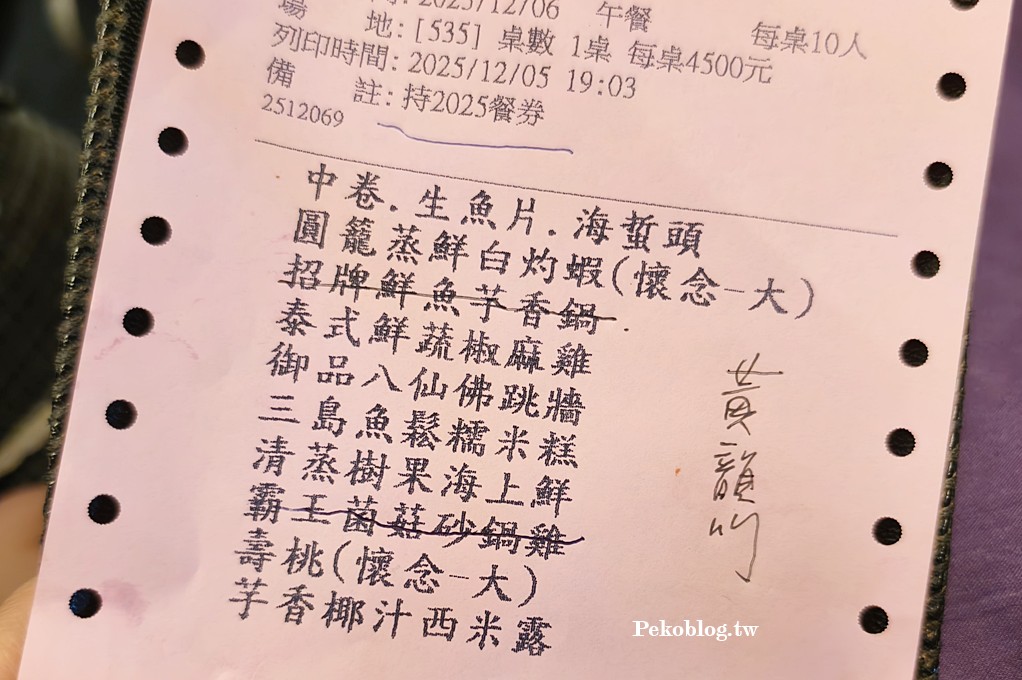 間: 2025/12/06 午餐 每桌10人
場 地: [535] 桌數 1桌 每桌4500元
列印時間: 2025/12/05 19:03
備 註: 持2025餐券
2512069
中卷.生魚片.海蜇頭
圓籠蒸鮮白灼蝦(懷念-大)
招牌鮮魚芋香鍋
泰式鮮蔬椒麻雞
御品八仙佛跳牆
三島魚鬆糯米糕
清蒸樹果海上鮮
霸王菌菇砂鍋雞
壽桃(懷念-大)
芋香椰汁西米露
黃
Pekoblog.tw